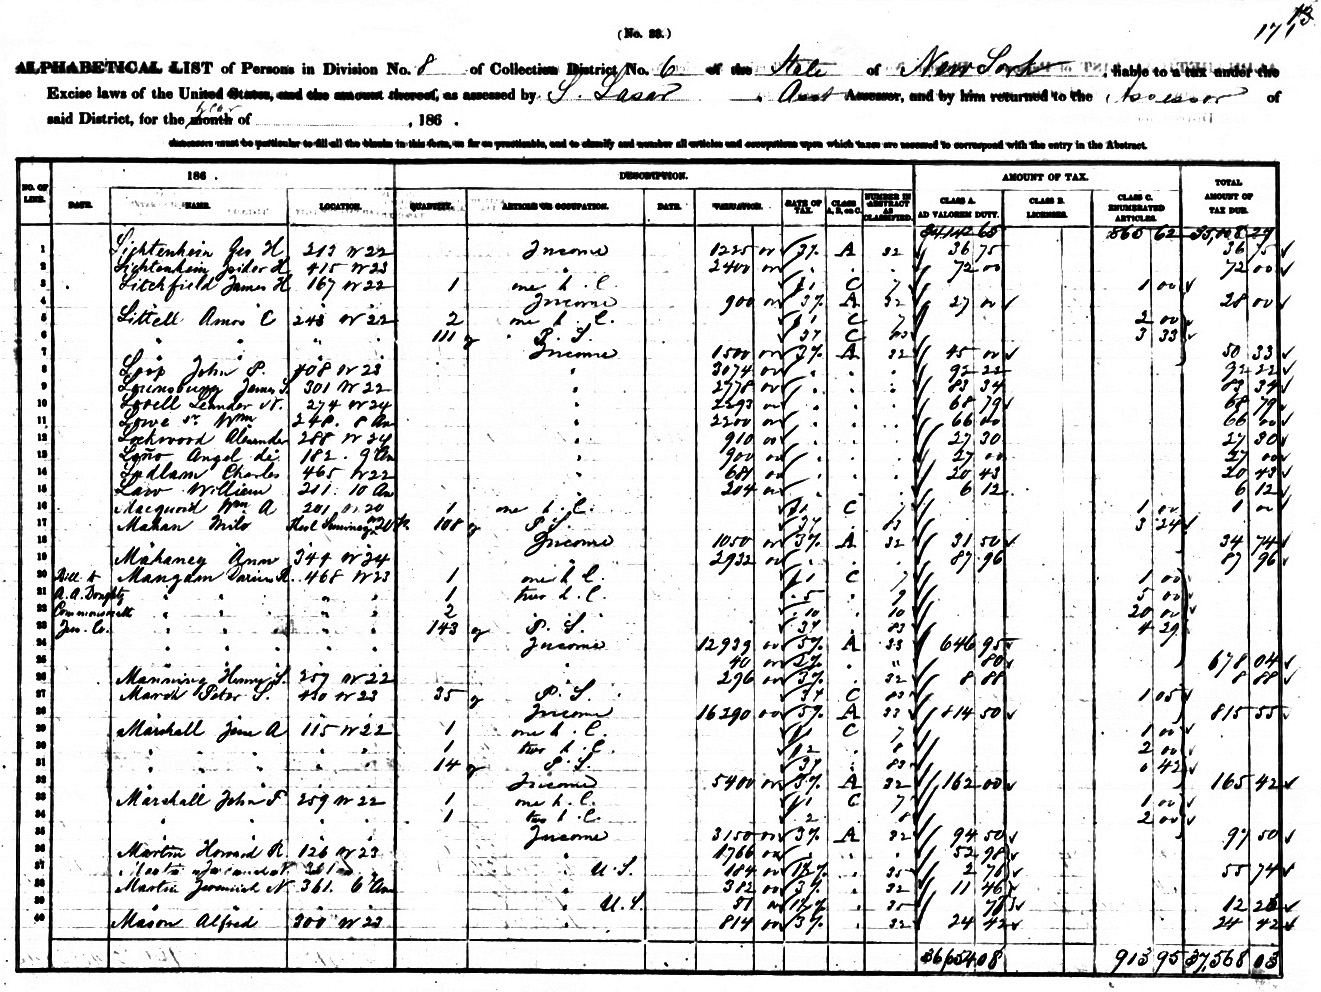 17
(No. 23.)
ALPHABETICAL LIST of Persons in Division No. 8 of Collection District No. 6 of the State of New York, liable to a tax under the
Excise laws of the United States, and the amount thereof, as assessed by S. Lasar, Asst Assessor, and by him returned to the Assessor of
said District, for the month year of , 186 .
Assessors must be particular to fill all the blanks in this form, as far as practicable, and to classify and number all articles and occupations upon which taxes are assessed to correspond with the entry in the Abstract.
NO. OF LINE. 186 . DESCRIPTION. AMOUNT OF TAX. TOTAL AMOUNT OF TAX DUE.
DATE. NAME. LOCATION. QUANTITY. ARTICLE OR OCCUPATION. DATE. VALUATION. RATE OF TAX. CLASS A, B, or C. NUMBER IN ABSTRACT AS CLASSIFIED. CLASS A. AD VALOREM DUTY. CLASS B. LICENSES. CLASS C. ENUMERATED ARTICLES.
34142 63 865 62 35,008 29
1 Lichtenhein Geo H 213 W 22 Income 1225 00 3% A 32 36 75 36 75
2 Lichtenhein Isidor H 415 W 23 " 2400 00 72 00 72 00
3 Litchfield James H 167 W 22 1 one h. C. 1 C 7 1 00
4 " " " " Income 900 00 3% A 32 27 00 28 00
5 Littell Amos C 243 W 22 2 one h. C. 1 C 7 2 00
6 " " " " 111 oz P. S. 3 C 83 3 33
7 " " " " Income 1500 00 3% A 32 45 00 50 33
8 Loop John P. 408 W 23 " 3074 00 92 22 92 22
9 Lounsbury James S. 301 W 22 " 2778 00 83 34 83 34
10 Lovell Leander N. 274 W 24 " 2293 00 68 79 68 79
11 Lowe Sr Wm 248 . 8 Av " 2200 00 66 00 66 00
12 Lockwood Alexander 288 W 24 " 910 00 27 30 27 30
13 Lono Angel de 182 . 9 Av " 900 00 27 00 27 00
14 Ludlam Charles 465 W 22 " 681 00 20 43 20 43
15 Law William 211 . 10 Av " 204 00 6 12 6 12
16 Macquoid Wm A 201 W 20 1 one h. C. 1 C 7 1 00 1 00
17 Mahan Milo 108 oz P. S. 3 83 3 24
18 " " " Income 1050 00 3% A 32 31 50 34 74
19 Mahaney Ann 344 W 24 " 2932 00 87 96 87 96
20 Mangam Darius R. 468 W 23 1 one h. C. 1 C 7 1 00
21 A. A. Doughty " " " " 1 two h. C. 5 9 5 00
22 Commonwealth " " " " 2 " 10 10 20 00
23 Ins. Co. " " " " 143 oz P. S. 3 83 4 29
24 " " " " Income 12939 00 5% A 33 646 95
25 " " " " " 40 00 2% " 80 678 04
26 Manning Henry S. 257 W 22 " 296 00 3% 32 8 88 8 88
27 Marsh Peter S. 410 W 23 35 oz P. S. 3 C 83 1 05
28 " " " " Income 16290 00 5% A 33 814 50 815 55
29 Marshall Jane A 115 W 22 1 one h. C. 1 C 7 1 00
30 " " " " 1 two h. C. 2 8 2 00
31 " " " " 14 oz P. S. 3 83 42
32 " " " " Income 5400 00 3% A 32 162 00 165 42
33 Marshall John F 259 W 22 1 one h. C. 1 C 7 1 00
34 " " " " 1 two h. C. 2 8 2 00
35 " " " " Income 3150 00 3% A 32 94 50 97 50
36 Martin Howard R. 126 W 23 " 1766 00 52 98
37 " U.S. 184 00 1½% 35 2 76 55 74
38 Martin Jeremiah N. 361 . 6 Av " 382 00 3% 32 11 46
39 " " " U.S. 51 00 1½% 35
40 Mason Alfred 300 W 23 " 814 00 3% 32 24 42 24 42
36,654 08 913 95 37,568 03